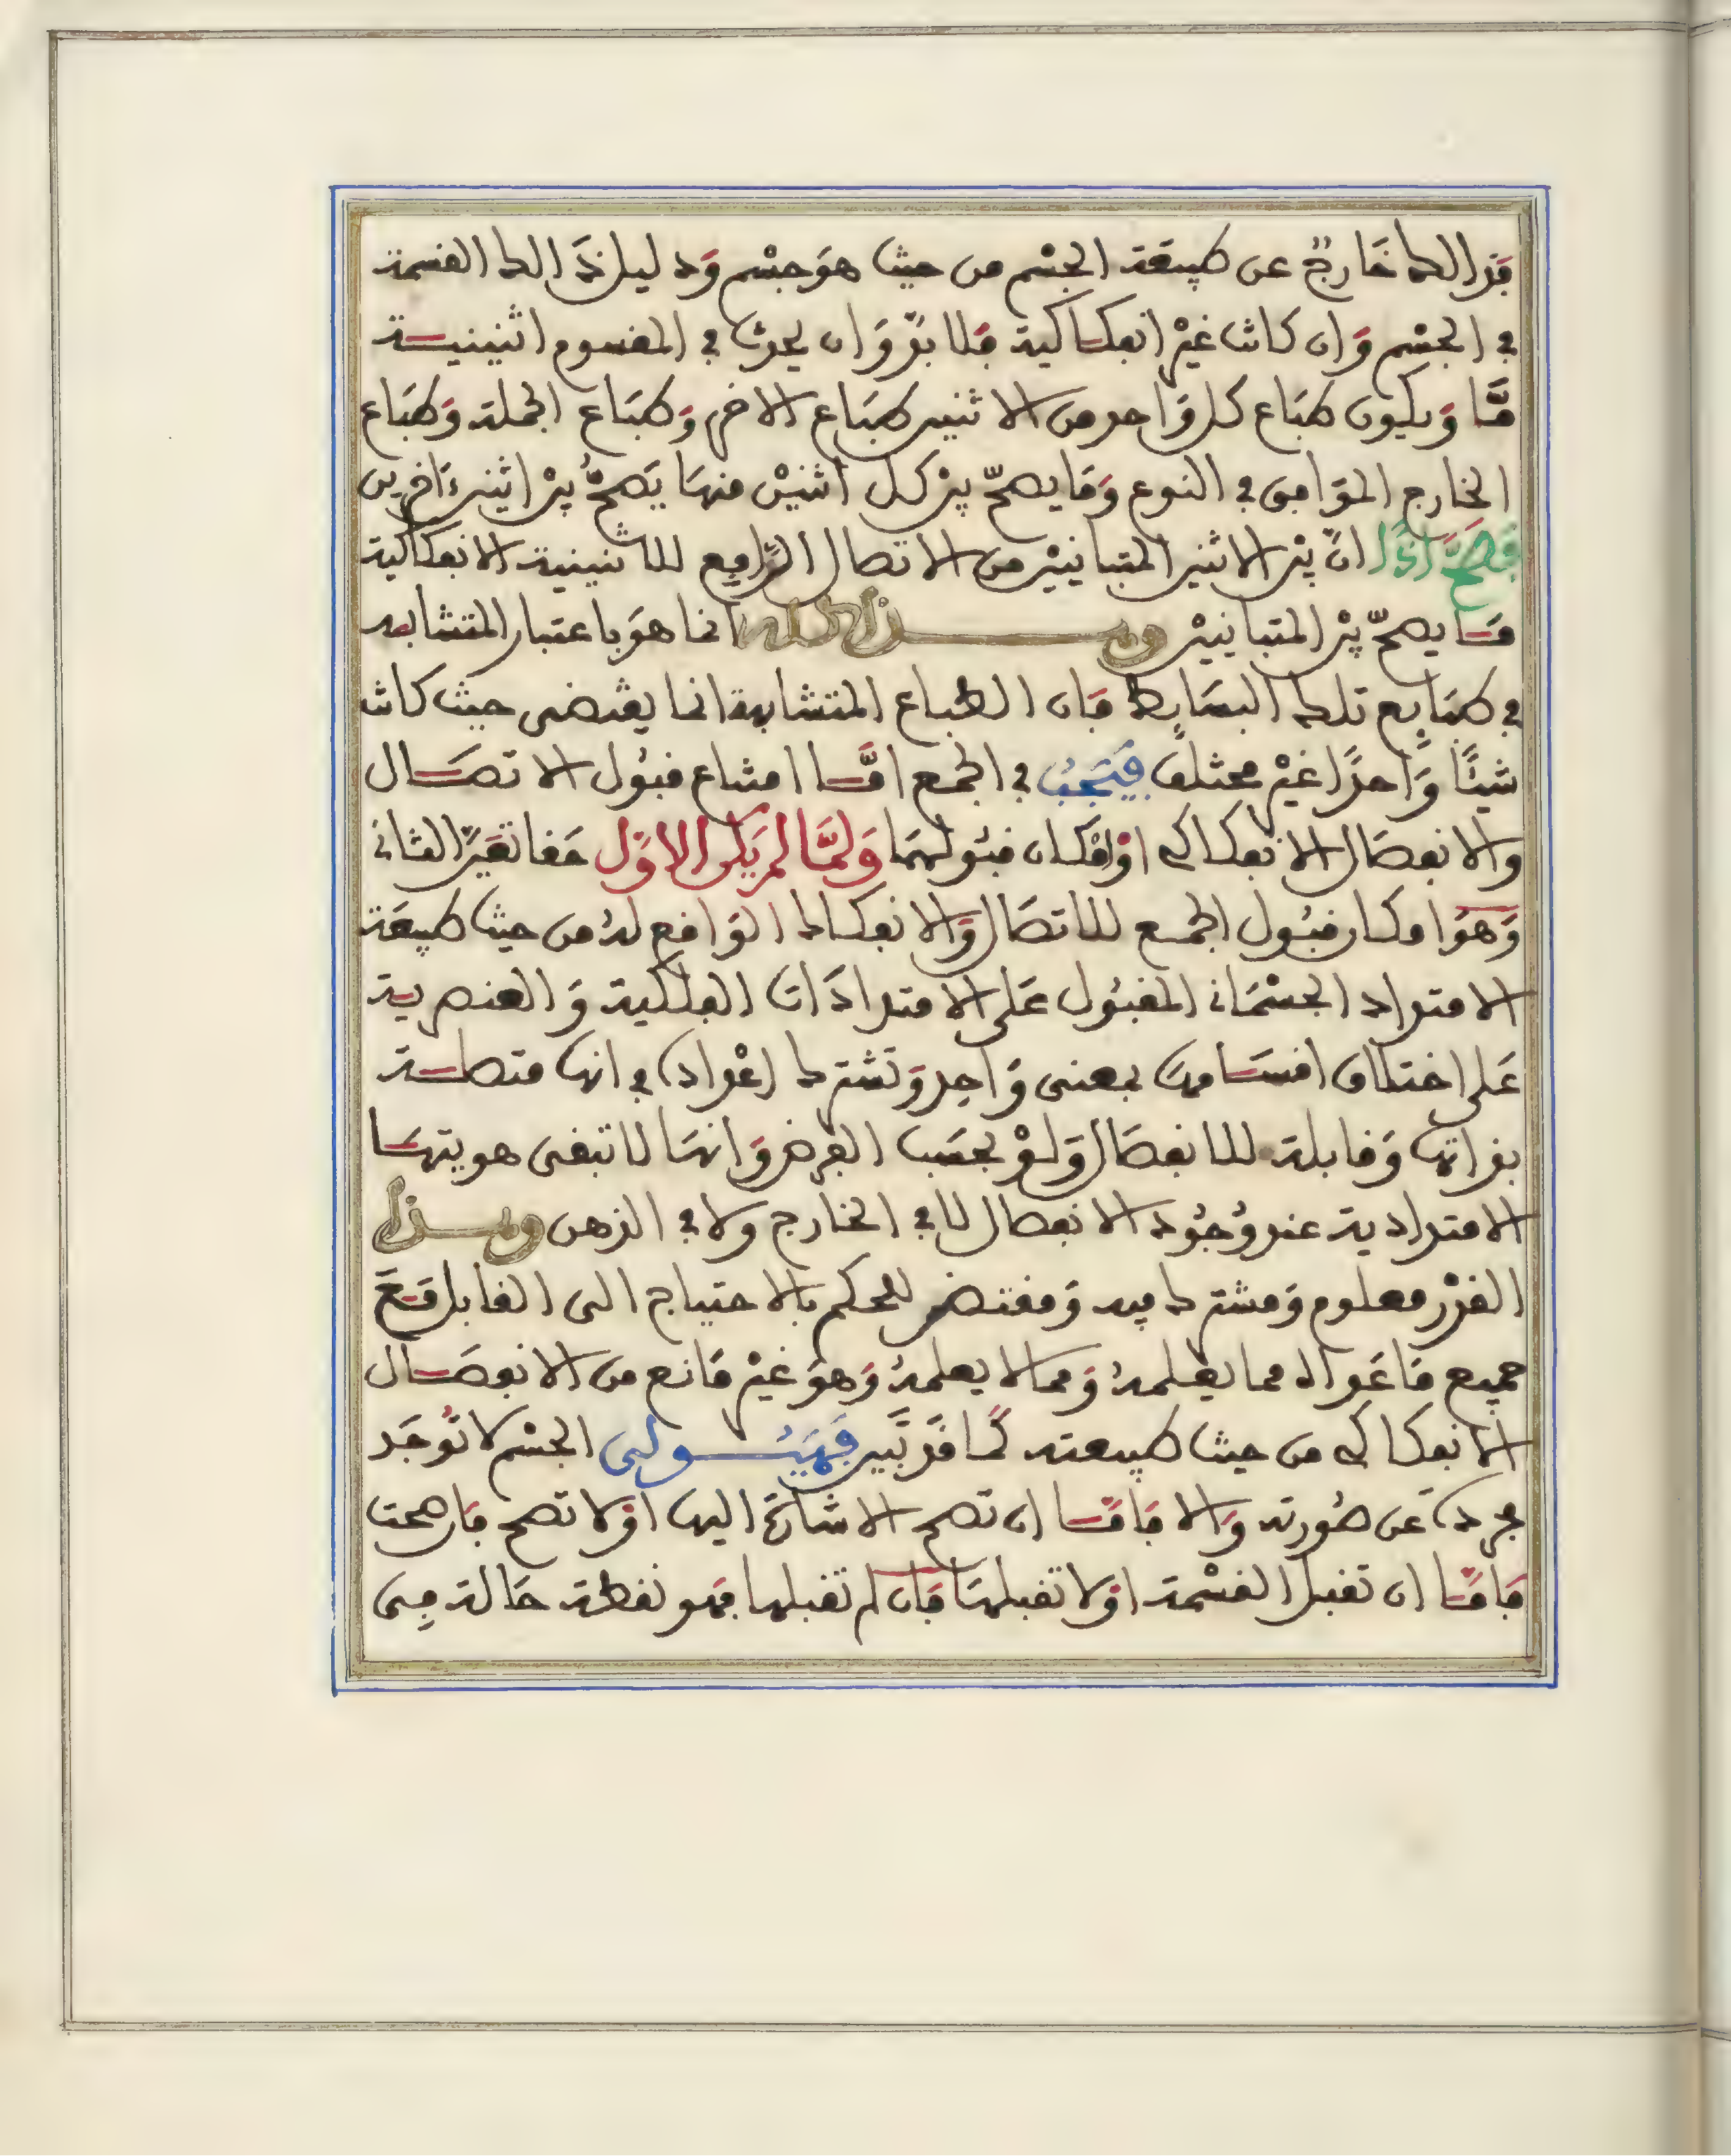 فذالك خَارجٌ عن طبيعَة الجسْم من حيث هوَ جسْم وَدليل ذَالك القسمة
في الجسْم وَان كانت غيْر انفكاكية فلا بدّ وَان يحدث في المقسوم اثنينيــة
مَّا وَيكون طبَاع كل وَاحد من الاثنين طبَاع الاخر وَطبَاع الجملة وَطبَاع
الخارج الموَافق في النوع وَمَا يصحّ بيْن كل اثنيْن منهَا يَصحُّ بيْن اثنين ءَاخرين
فصَحَّ اذًا انّ بيْن الاثنين المتباينيْن من الاتصال الرَّافع للاثنينية الانفكاكية
مَــا يصحّ بيْن المتباينيْن وهـــذا كله انما هوَ باعتبار المتشابه
في طبَايع تلك البسَايط فان الطباع المتشابهة انما يقتضى حيث كانت
شيئًا وَّاحدًا غيْر مختلف فيَجبُ في الجمع امَّــا امتناع قبُول الاتصَــال
والانفصَال الانفكاكي اوْ امكان قبُولهمَا وَلمَّا لم يَكن الاوّل حقا تعَيّن الثانى
وَهوَ امكان قبُول الجمع للاتصَال وَالانفكاك الوَاقع لهُ من حيث طبيعَة
الامتداد الجسْمَانى المقبُول عَلى الامتدادَات الفلكية وَالعنصرية
عَلى اختلاف اقسَــامهَا بمعنى وَاحِد وَتشترك (اعْداد) في انها متصلــة
بذاتهَا وَقابلة للانفصَال وَلوْ بحسَب الفرض وَانهَا لا تبقى هويتهَــا
الامتدادية عند وُجُود الانفصال لا في الخارج ولا في الذهن وهــذا
القدْر معلوم وَمشترك فيه وَمقتض للحكم بالاحتياج الى القابل مَــعَ
جميع مَا عَداه مما يعْلمهُ وَمما لا يعلمهُ وَهوَ غيْر مَانع من الانفصَــال
الانفكاكي من حيث طبيعته كمَا قدْ تبَّين فهيُـــولى الجسْم لا تُوجَد
مجردة عَن صُورته وَالا فامّــا ان تصح الاشارَة اليها اوْ لا تصح فان صحت
فامّــا ان تقبل القسْمة اوْ لا تقبلهَا فان لم تقبلها فهو نقطة حَالة مِــن